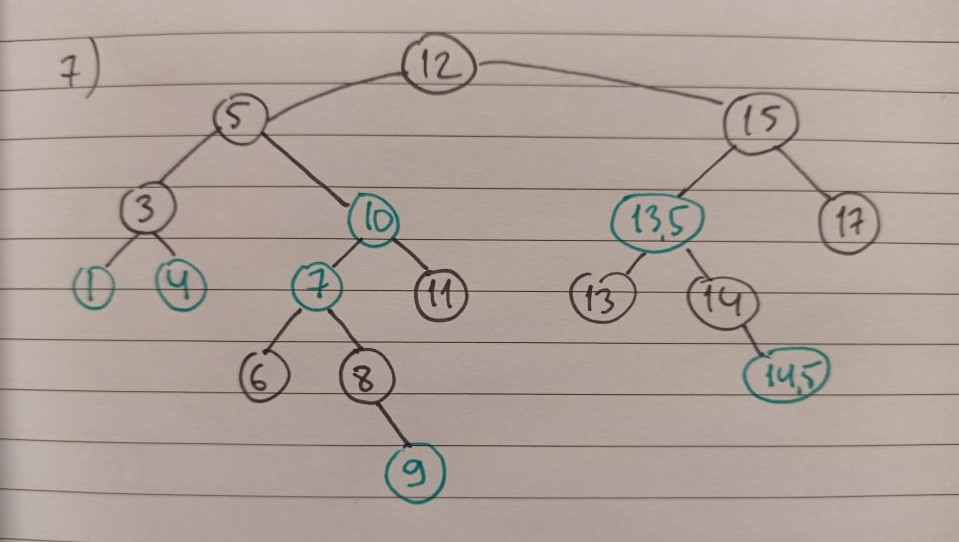 7)
12
5 15
3 10 13,5 17
1 4 7 11 13 14
6 8 14,5
9